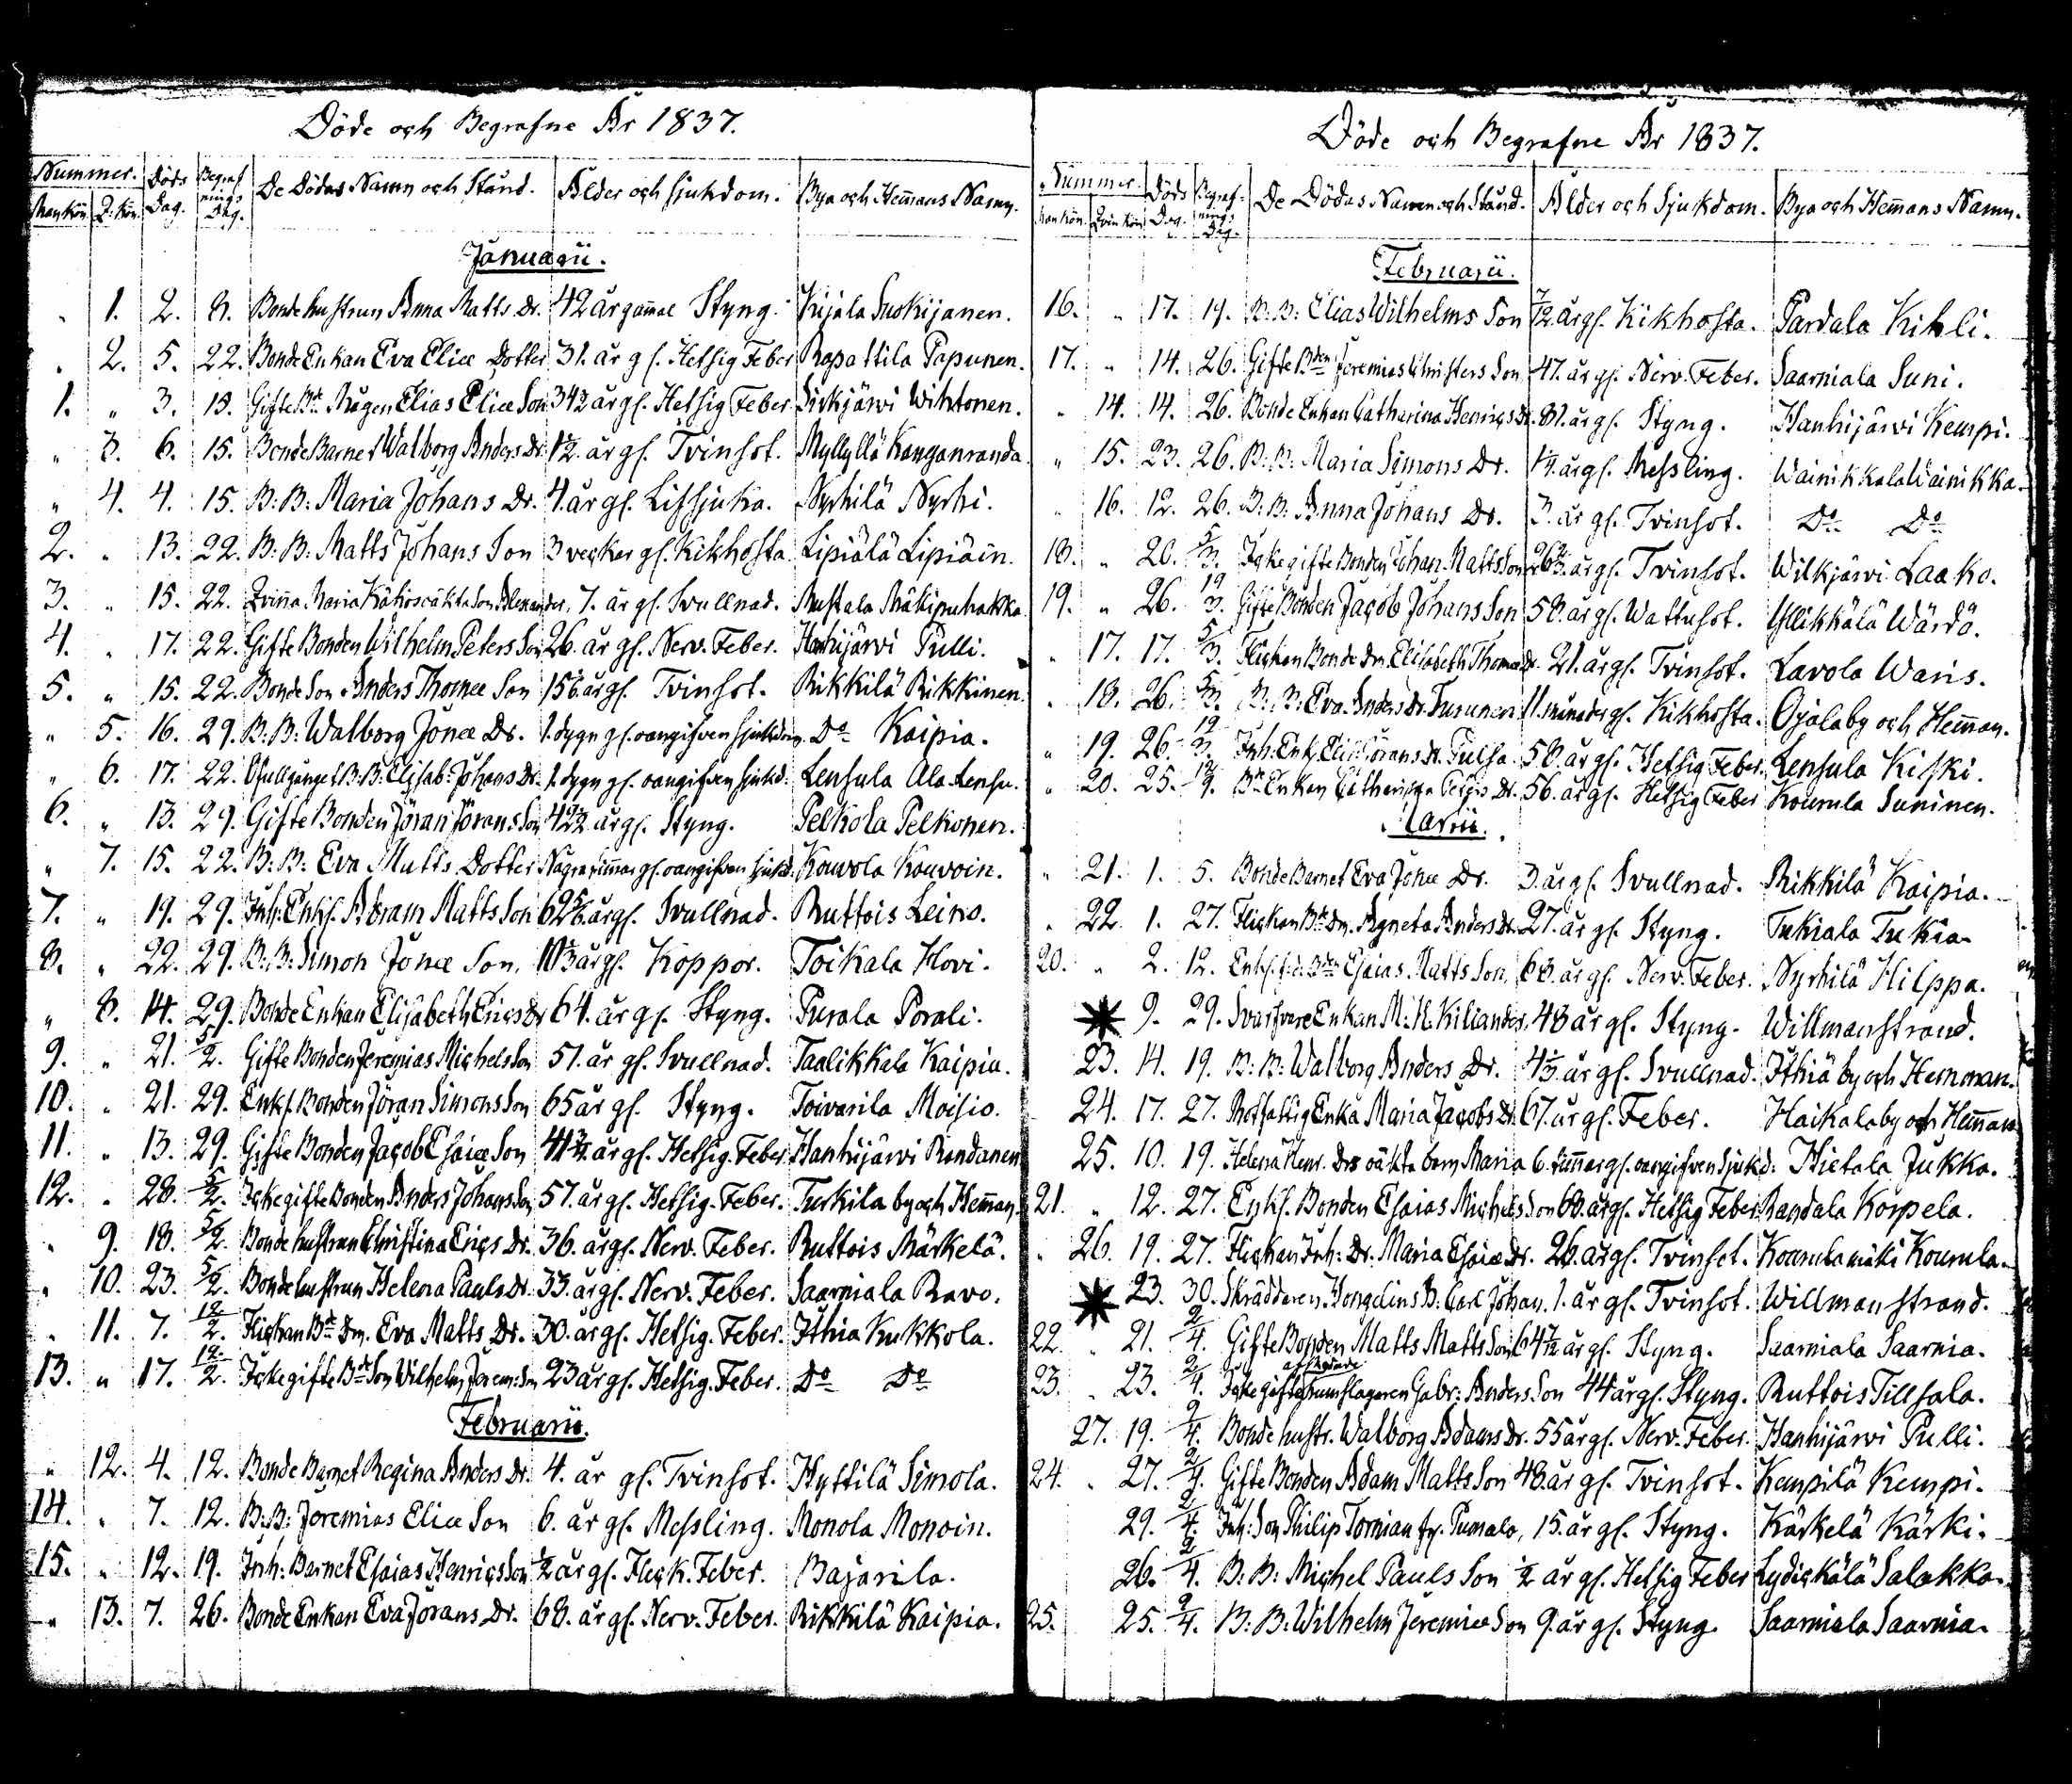 Döde och Begrafne År 1837.
Nummer. Döds Dag. Begrafnings Dag. De Dödas Namn och Stånd. Ålder och Sjukdom. Bya och Hem̄ans Namn.
Mankön. Q: Kön.
Januarii.
" 1. 2. 8. Bonde hustrun Anna Matts Dr. 42 år gam̄al Styng. Kijala Suokijanen.
" 2. 5. 22. Bonde Enkan Eva Eliæ Dotter 31. år gl. Hetsig Feber Rapattila Papunen.
1. " 3. 15. Gifte Bde Mågen Elias Eliæ Son 34½ år gl. Hetsig Feber Sirkjärvi Wihtonen.
" 3. 6. 15. Bonde Barnet Walborg Anders Dr. 1½ år gl. Tvinsot. Myllyllä Kanganranda
" 4. 4. 15. B: B: Maria Johans Dr. 4. år gl. Lifsjuka. Nyrhilä Nyrhi.
2. " 13. 22. B: B: Matts Johans Son 3 veckar gl. Kikhosta Lipiälä Lipiäin.
3. " 15. 22. Qvin̄a Maria oäkta Son Alexander, 7. år gl. Svullnad. Mustala Mäkipuhakka
4. " 17. 22. Gifte Bonden Wilhelm Peters Son 26. år gl. Nerv. Feber. Hanhijärvi Pulli.
5. " 15. 22. Bonde Son Anders Thomæ Son 15 år gl. Tvinsot. Rikkilä Rikkinen.
" 5. 16. 29. B: B: Walborg Jonæ Dr. 1. dygn gl. oangifven sjukdom. Do Kaipia.
" 6. 17. 22. Ofullgånget B: B: Elisab: Johans Dr. 1. dygn gl. oangifven sjukd: Lensula Ala Lensu.
6. " 13. 29. Gifte Bonden Jöran Jörans Son 42½ år gl. Styng. Pelkola Pelkonen.
" 7. 15. 22. B: B: Eva Matts Dotter Några tim̄ar gl. oangifven sjukd: Kouvola Kouvoin.
7. " 19. 29. Inh: Enkl. Abram Matts Son 62 år gl. Svullnad. Ruttois Leino.
8. " 22. 29. B: B: Simon Jonæ Son, år gl. Koppor. Toikala Hovi.
" 8. 14. 29. Bonde Enkan Elisabeth Erics Dr 64. år gl. Styng. Purala Porali.
9. " 21. 5/2. Gifte Bonden Jeremias Michels Son 51. år gl. Svullnad. Taalikkala Kaipia.
10. " 21. 29. Enkl. Bonden Jöran Simons Son 65 år gl. Styng. Toivarila Moisio.
11. " 13. 29. Gifte Bonden Jacob Esaiæ Son 41¾ år gl. Hetsig. Feber. Hanhijärvi Randanen
12. " 28. 5/2. Icke gifte Bonden Anders Johans Son 57. år gl. Hetsig. Feber. Turkila by och Hem̄an.
" 9. 18. 5/2. Bonde hustrun Christina Erics Dr. 36. år gl. Nerv. Feber. Ruttois Märkelä.
" 10. 23. 5/2. Bonde hustrun Helena Pauls Dr. 33. år gl. Nerv. Feber. Saarniala Ravo.
" 11. 7. 12/2. Flickan Bde Dr. Eva Matts Dr. 30. år gl. Hetsig. Feber. Ithia Kukkola.
13. " 17. 12/2. Icke gifte Bde Son Wilhelm Jerem: Son 23 år gl. Hetsig. Feber. Do Do
Februarii.
" 12. 4. 12. Bonde Barnet Regina Anders Dr. 4. år gl. Tvinsot. Hyttilä Simola.
14. " 7. 12. B: B: Jeremias Eliæ Son 6. år gl. Messling. Monola Monoin.
15. " 12. 19. Inh: Barnet Esaias Henrics Son ½ år gl. Fleck. Feber. Bajarila.
" 13. 7. 26. Bonde Enkan Eva Jörans Dr. 68. år gl. Nerv. Feber. Rikkilä Kaipia.
Döde och Begrafne År 1837.
Nummer. Döds Dag. Begrafnings Dag. De Dödas Namn och Stånd. Ålder och Sjukdom. Bya och Hem̄ans Namn.
Mankön. Qvinkön.
Februarii.
16. " 17. 19. B: B: Elias Wilhelms Son 7/12 år gl. Kikhosta. Pardala Kihli.
17. " 14. 26. Gifte Bden Jeremias Christers Son 47. år gl. Nerv. Feber. Saarniala Suni.
" 14. 14. 26. Bonde Enkan Catharina Henrics Dr. 81. år gl. Styng. Hanhijärvi Kempi.
" 15. 23. 26. B: B: Maria Simons Dr. 1¼ år gl. Messling. Wainikkala Wainikka.
" 16. 12. 26. B: B: Anna Johans Dr. 3. år gl. Tvinsot. Do Do
18. " 20. 5/3. Icke gifte Bonden Johan Matts Son år gl. Tvinsot. Wilkjärvi Laako.
19. " 26. 19/3. Gifte Bonden Jacob Johans Son 58. år gl. Wattusot. Yllikkälä Wärdä.
" 17. 17. 5/3. Flickan Bonde Dr. Elisabeth Thomæ Dr. 21. år gl. Tvinsot. Lavola Waris.
" 18. 26. 5/3. B: B: Eva Anders Dr. Turunen 11. månader gl. Kikhosta. Ojala by och Hem̄an.
" 19. 26. 12/3. Inh: Enk. Elis Jörans Dr. Tulsa 58. år gl. Hetsig Feber. Lensula Kiski.
" 20. 25. Bde Enkan Catharina Dr. 56. år gl. Hetsig Feber Kourula Suninen.
Martii.
" 21. 1. 5. Bonde Barnet Eva Jonæ Dr. 3. år gl. Svullnad. Rikkilä Kaipia.
" 22. 1. 27. Flickan Bde Dr. Agneta Anders Dr. 27. år gl. Styng. Tukiala Tukia
20. " 2. 12. Enkl. Bden Esaias Matts Son, 68. år gl. Nerv. Feber. Nyrhilä Hilppa.
9. 29. Svarfvare Enkan M: H. Kiliander, 48 år gl. Styng. Willmanstrand.
23. 14. 19. B: B: Walborg Anders Dr. 4⅓ år gl. Svullnad. Ithiä by och Hemman.
24. 17. 27. Rotfattig Enka Maria Jacobs Dr 67. år gl. Feber. Haikala by och Hem̄an
25. 10. 19. Helena Henr. Drs oäkta barn Maria 6. tim̄ar gl. oangifven Sjukd: Hietala Jukka.
21. " 12. 27. Enkl. Bonden Esaias Michels Son 68. år gl. Hetsig Feber Randala Korpela.
" 26. 19. 27. Flickan Inh: Dr. Maria Esaiæ Dr. 26. år gl. Tvinsot. Kourula mäki Kourula.
23. 30. Skräddaren Hongelins B: Carl Johan. 1. år gl. Tvinsot. Willmanstrand.
22. " 21. 2/4. Gifte Bonden Matts Matts Son 64 7/12 år gl. Styng. Saarniala Saarnia.
23. " 23. 2/4. Icke gifte afskedade Trumslagaren Gabr: Anders Son 44 år gl. Styng. Ruttois Tillsala.
27. 19. 2/4. Bonde hustr. Walborg Adams Dr. 55 år gl. Nerv. Feber. Hanhijärvi Pulli.
24. " 27. 2/4. Gifte Bonden Adam Matts Son 48. år gl. Tvinsot. Kempilä Kempi.
29. 2/4. Inh: Son Philip Tornian fr. Pumala, 15. år gl. Styng. Kärkelä Kärki.
26. 2/4. B: B: Michel Pauls Son ½ år gl. Hetsig Feber Lydickälä Salakka.
25. 25. 2/4. B: B: Wilhelm Jeremiæ Son 9. år gl. Styng. Saarniala Saarnia.